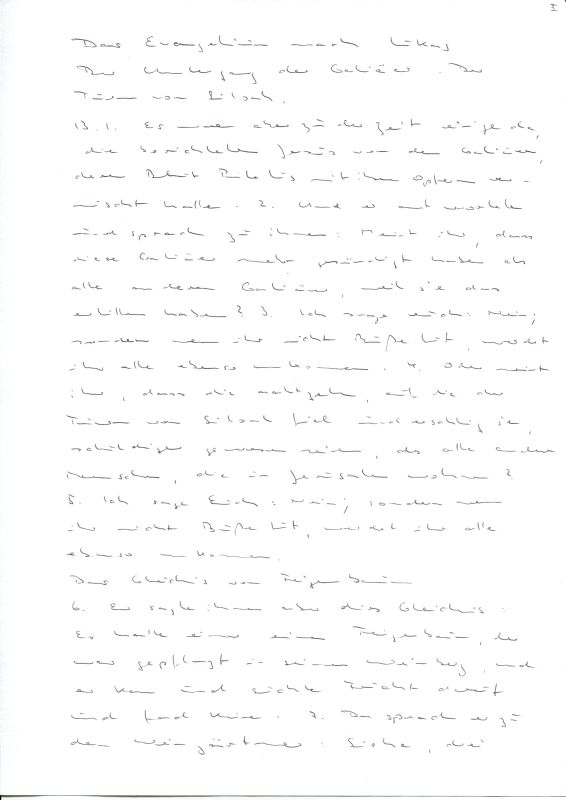 I
Das Evangelium nach Lukas
Der Untergang der Galiläer. Der
Turm von Siloah.
13.1. Es waren aber zu der Zeit einige da,
die berichteten Jesus von den Galiläern,
deren Blut Pilatus mit ihren Opfern ver-
mischt hatte. 2. Und er antwortete
und sprach zu ihnen: Meint ihr, dass
diese Galiläer mehr gesündigt haben als
alle anderen Galiläer, weil sie das
erlitten haben? 3. Ich sage euch: Nein;
sondern wenn ihr nicht Buße tut, werdet
ihr alle ebenso umkommen. 4. Oder meint
ihr, dass die achtzehn, auf die der
Turm von Siloah fiel und erschlug sie,
schuldiger gewesen seien, als alle anderen
Menschen, die in Jerusalem wohnen?
5. Ich sage Euch: Nein; sondern wenn
ihr nicht Buße tut, werdet ihr alle
ebenso umkommen.
Das Gleichnis vom Feigenbaum
6. Er sagte ihnen aber dies Gleichnis:
Es hatte einer einen Feigenbaum, der
war gepflanzt in seinem Weinberg, und
er kam und suchte Frucht darauf
und fand keine. 7. Da sprach er zu
dem Weingärtner: Siehe, drei